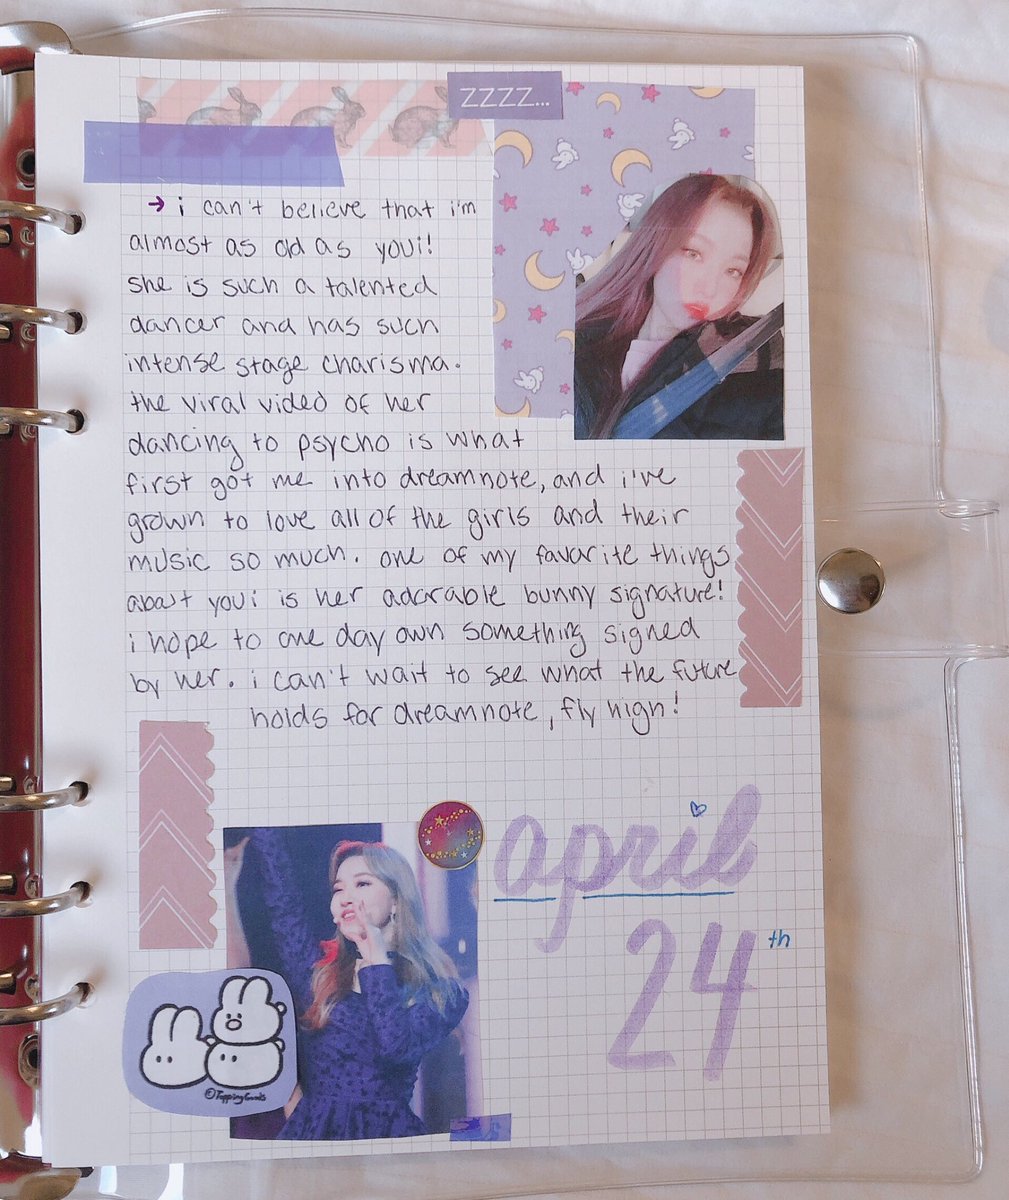 ZZZZ...
→ i can't believe that i'm
almost as old as youi!
she is such a talented
dancer and has such
intense stage charisma.
the viral video of her
dancing to psycho is what
first got me into dreamnote, and i've
grown to love all of the girls and their
music so much. one of my favorite things
about youi is her adorable bunny signature!
i hope to one day own something signed
by her. i can't wait to see what the future
holds for dreamnote, fly high!
april
24th